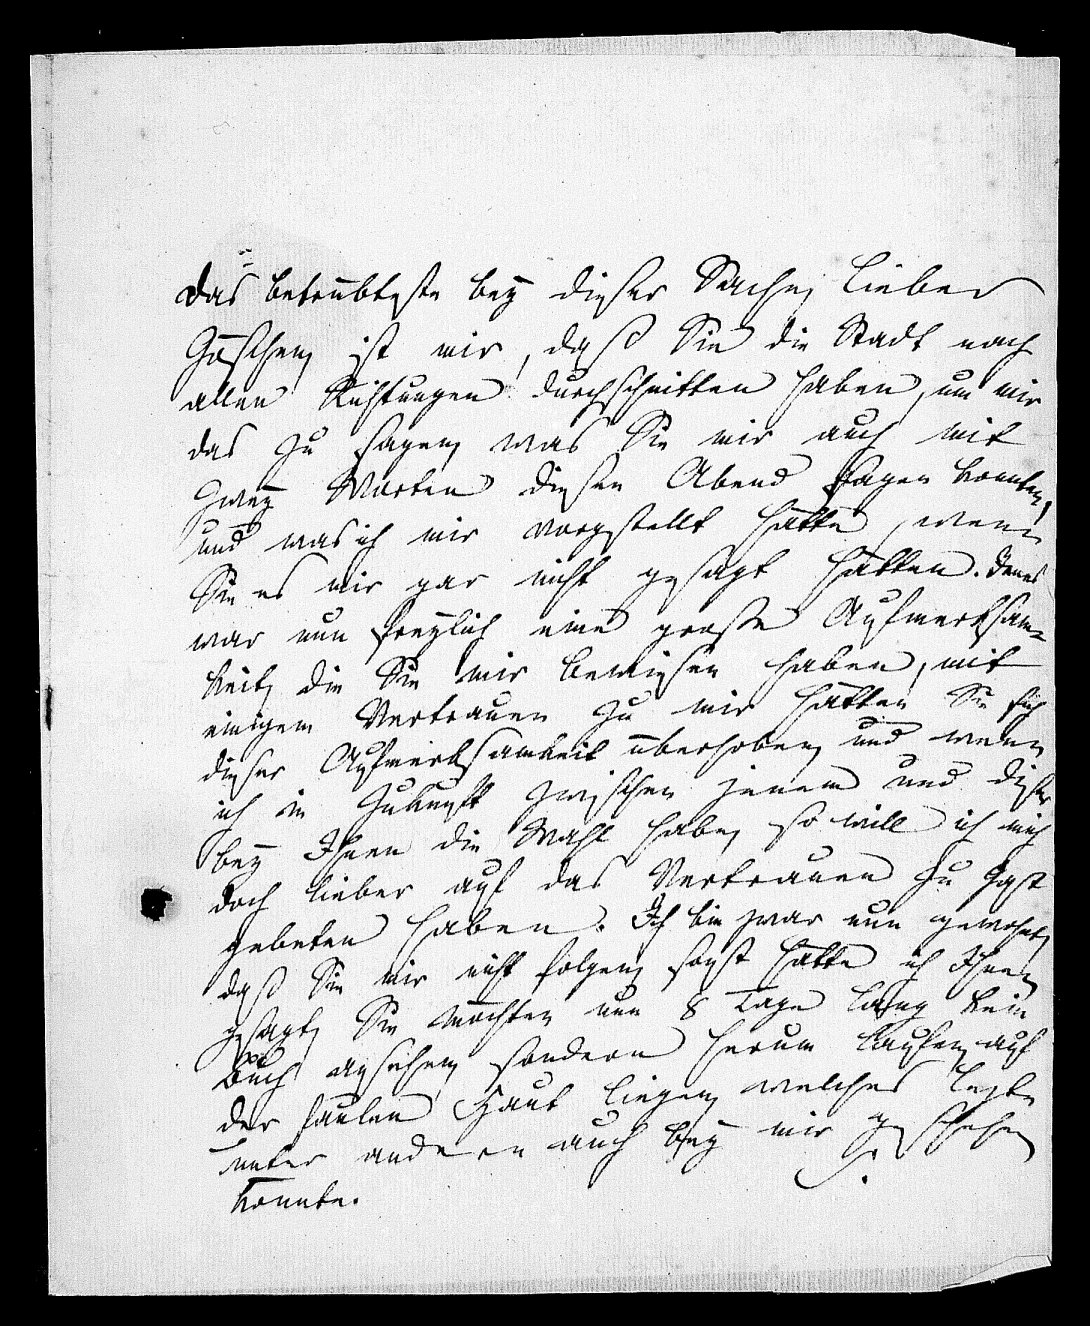 Das betrübteste bey dieser Sache, lieber
Göschen, ist mir, daß Sie die Stadt nach
allen Richtungen durchschnitten haben, um mir
das zu sagen, was Sie mir auch mit
zwey Worten diesen Abend sagen konnten,
und was ich mir vorgestellt hätte, wenn
Sie es mir gar nicht gesagt hätten. Jenes
war nun freylich eine große Aufmerksam-
keit, die Sie mir bewiesen haben, mit
einigem Vertrauen zu mir hätten Sie sich
dieser Aufmerksamkeit überhoben, und wenn
ich in Zukunft zwischen jenem und dieser
bey Ihnen die Wahl habe, so will ich mich
doch lieber auf das Vertrauen zu Gast
gebeten haben. Ich bin zwar nun gewohnt,
daß Sie mir nicht folgen, sonst hätte ich Ihnen
gesagt, Sie möchten nun 8 Tage lang kein
Buch ansehen, sondern herum laufen, auf
der faulen Haut liegen, welches letzte
unter andern auch bey mir geschehen
könnte. S.